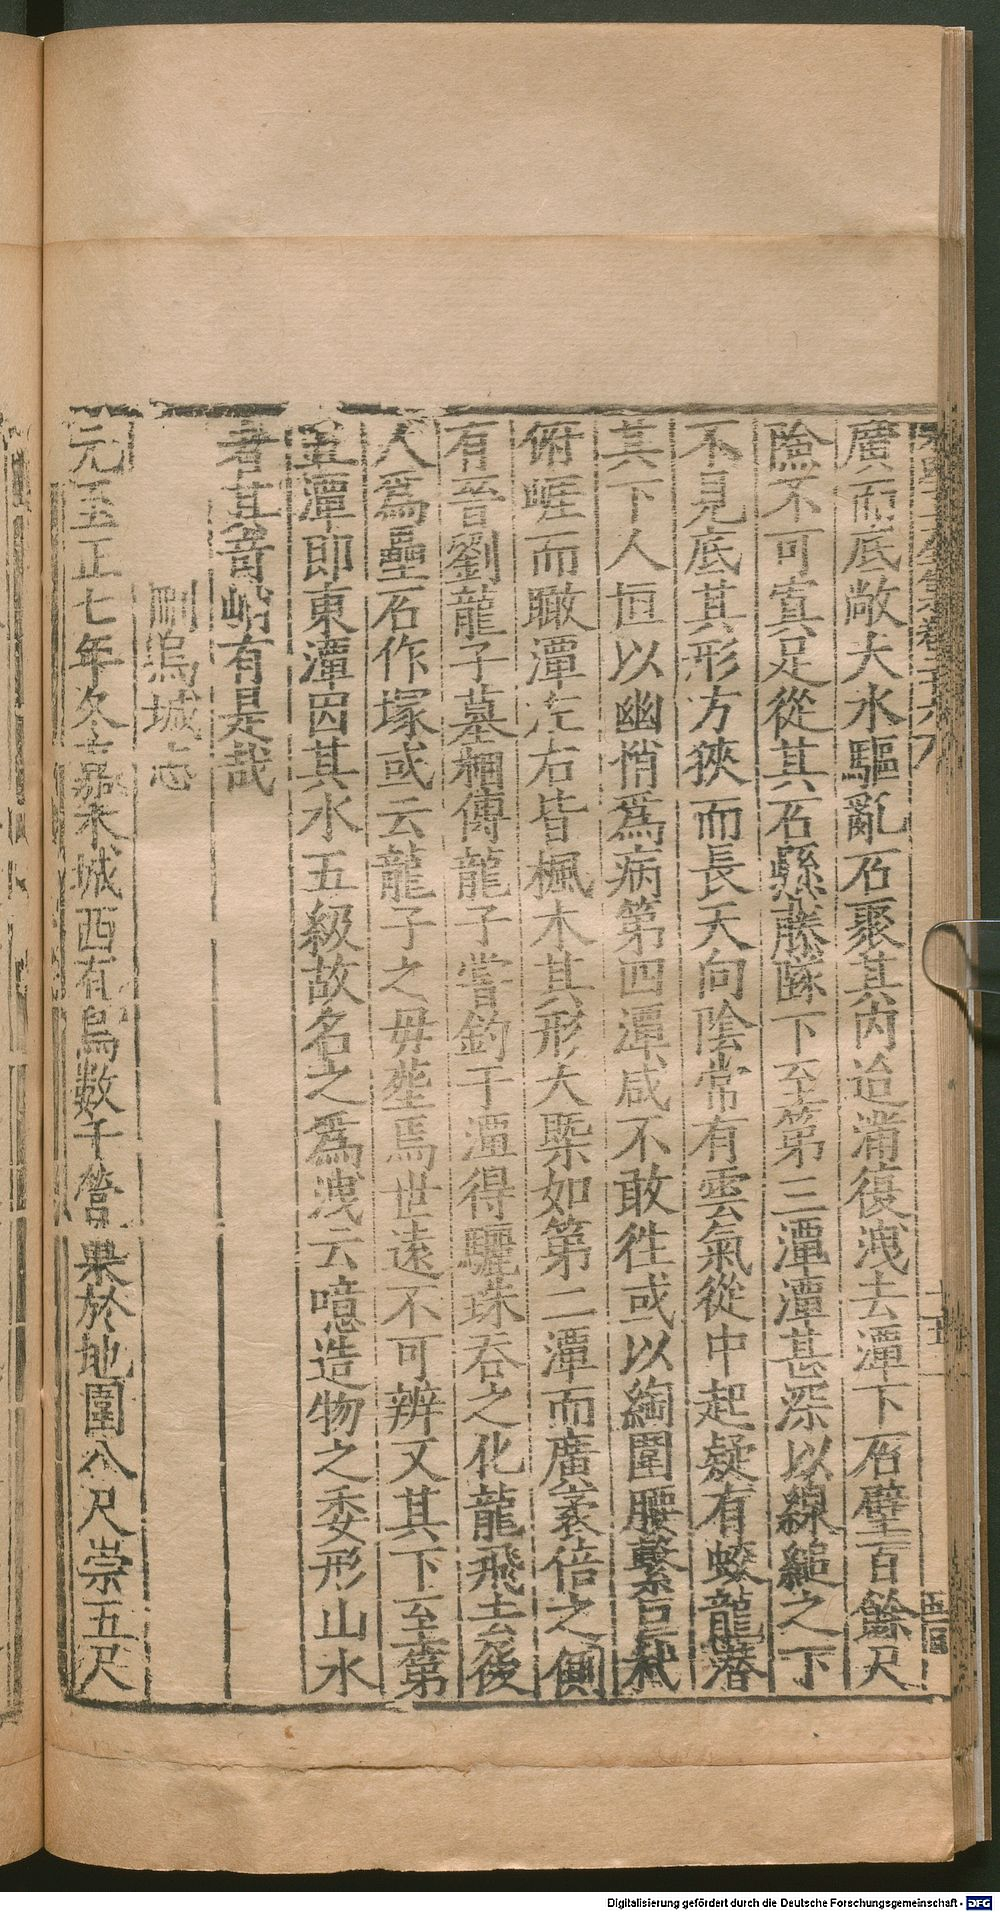 廣而底敞大水驅亂石聚其內迨滿復洩去潭下石壁百餘尺
險不可寘足從其石縣藤墜下至第三潭潭甚深以線縋之下
不見底其形方狹而長天向陰常有雲氣從中起疑有蛟龍潛
其下人恒以幽悄爲病第四潭咸不敢徃或以綯圍腰繫巨栽
俯崕而瞰潭左右皆楓木其形大槩如第二潭而廣袤倍之側
有晉劉龍子墓相傳龍子嘗釣于潭得驪珠吞之化龍飛去後
人爲壘石作塚或云龍子之毋塟焉世遠不可辨又其下至第
五潭即東潭因其水五級故名之爲洩云噫造物之委形山水
者其竒峭有是哉
刪烏城志
元至正七年冬嘉禾城西有烏數千營巢於地圍八尺崇五尺
Digitalisierung gefördert durch die Deutsche Forschungsgemeinschaft - DFG